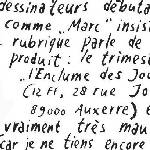 dessinateurs débuta
comme „Marc" insis
rubrique parle de
produit : le trimes
„l'Enclume des Jou
(12 FF, 28 rue Jo
89000 Auxerre) e
vraiment très mau
car je ne tiens encore